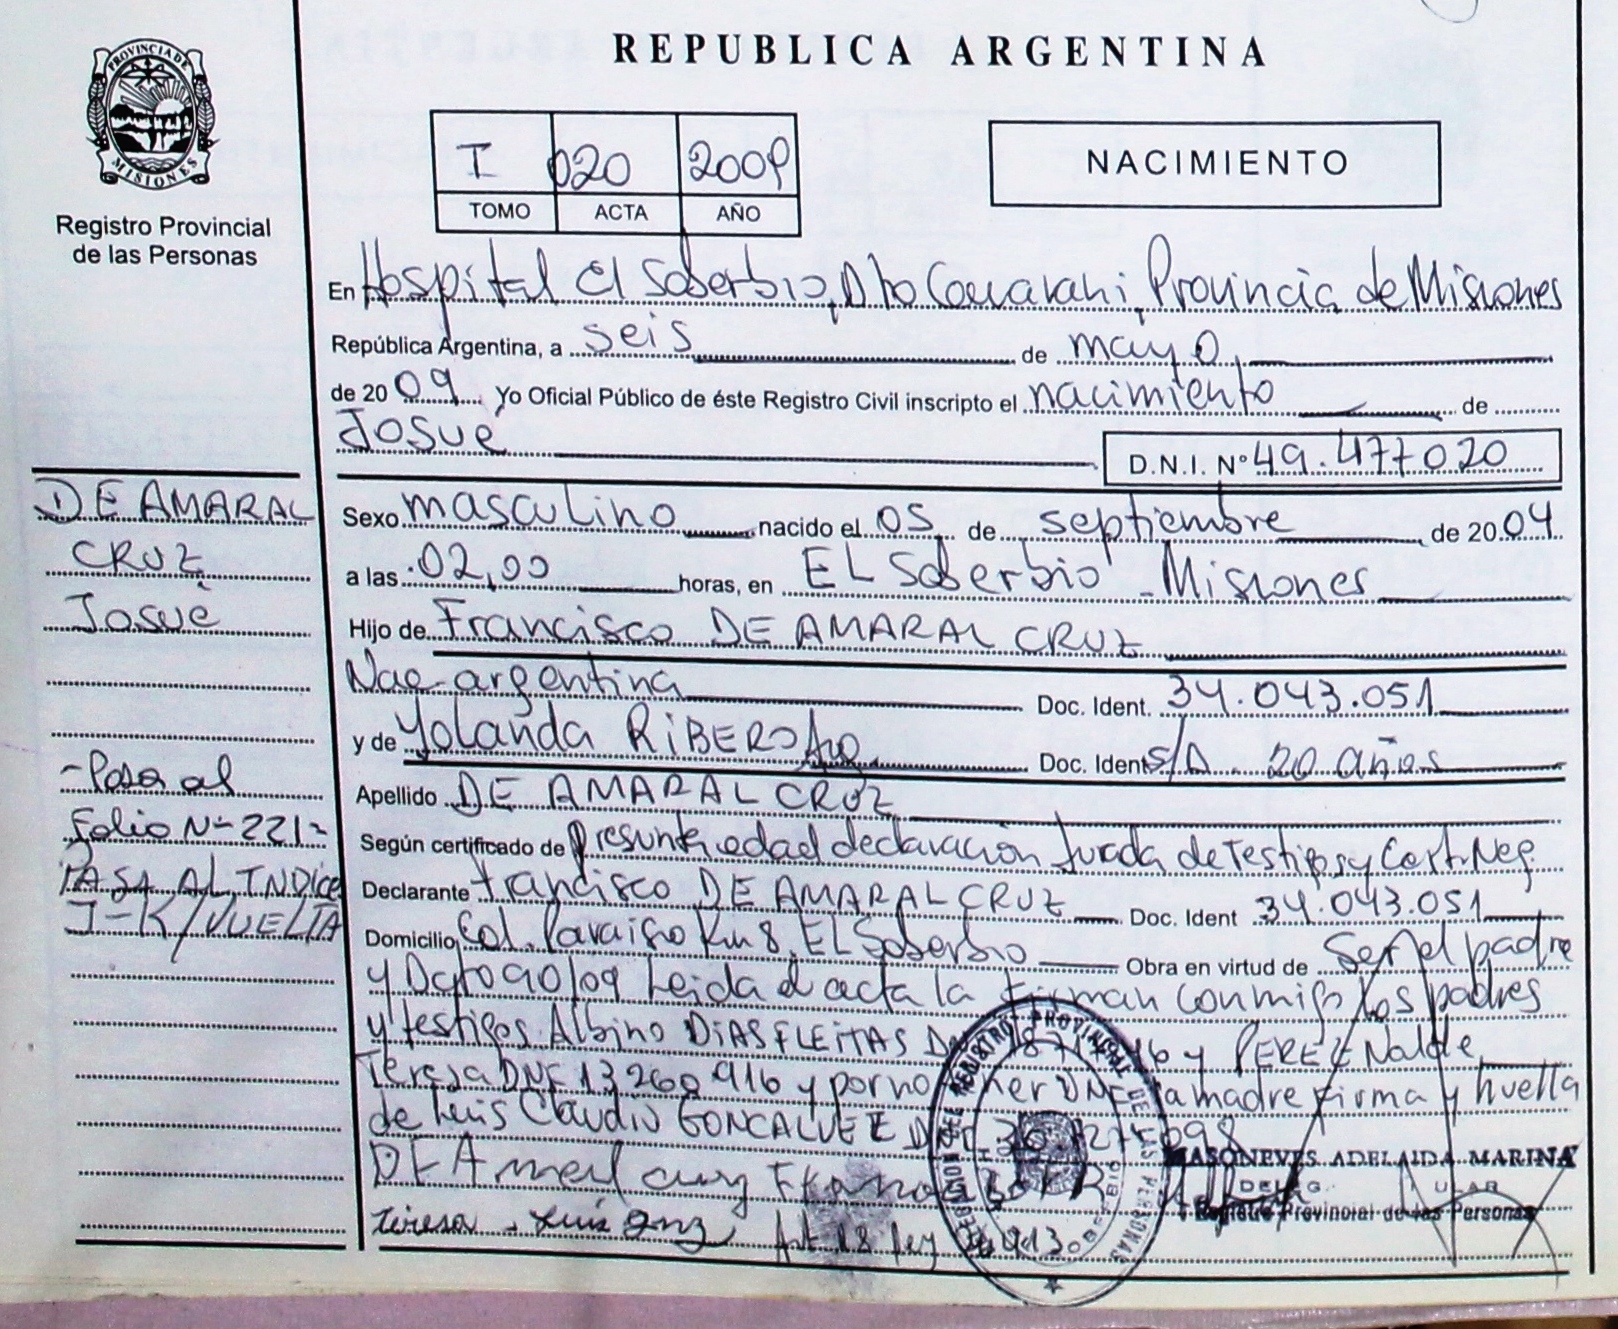 PROVINCIA DE MISIONES
Registro Provincial
de las Personas
REPUBLICA ARGENTINA
I 020 2009
TOMO ACTA AÑO
NACIMIENTO
En Hospital El Soberbio, Dto Guarani, Provincia de Misiones
República Argentina, a seis de mayo
de 2009 Yo Oficial Público de éste Registro Civil inscripto el nacimiento de
Josue
D.N.I. Nº 49.477020
DE AMARAL
CRUZ
Josué
Sexo masculino nacido el 05 de septiembre de 2004
a las 02,00 horas, en EL Soberbio - Misiones
Hijo de Francisco DE AMARAL CRUZ
Nac argentina Doc. Ident. 34.043.051
y de Yolanda RIBERO Doc. Ident S/D. 20 años
Apellido DE AMARAL CRUZ
- Pasa al
Folio Nº 221 -
PASA AL INDice
J-K/VUELTA
Según certificado de Presunta edad declaración Jurada de Testigos y Cert. Neg.
Declarante Francisco DE AMARAL CRUZ Doc. Ident 34.043.051
Domicilio Col. Paraiso Km 8, EL Soberbio Obra en virtud de Ser el padre
y Dcto 90/09 Leida el acta la firman conmigo los padres
y testigos Albino DIAS FLEITAS y PEREZ
Teresa DNI 13269916 y por no DNI la madre firma y huella
de Luis Claudio GONCALVEZ DNI
DE A
Teresa - Luis Art 18 Ley
REGISTRO PROVINCIAL DE LAS PERSONAS
MASONEVES ADELAIDA MARINA
Registro Provincial de las Personas